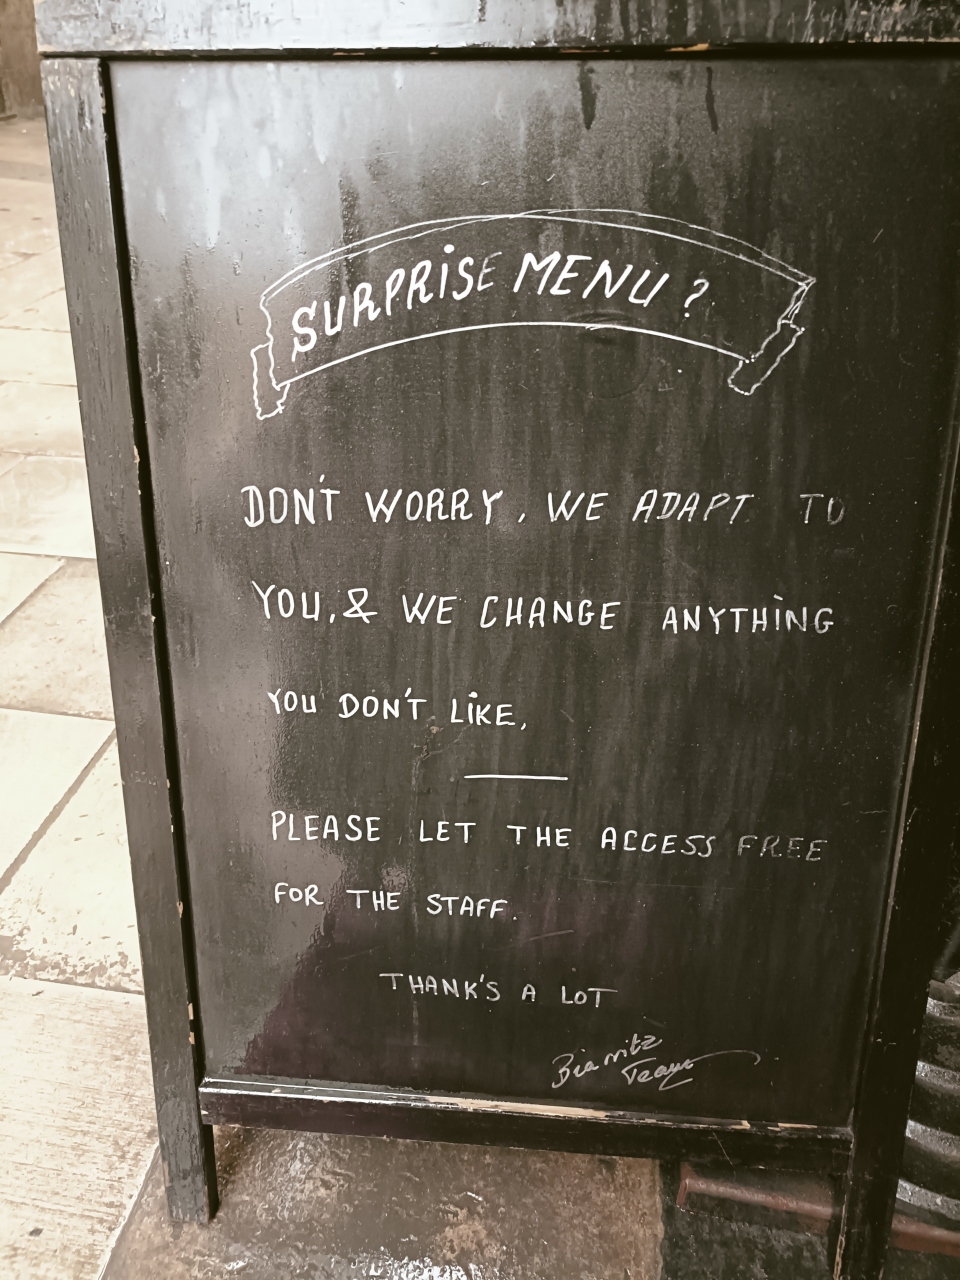 SURPRISE MENU ?
DON'T WORRY, WE ADAPT TO
YOU, & WE CHANGE ANYTHING
YOU DON'T LIKE,
PLEASE LET THE ACCESS FREE
FOR THE STAFF.
THANK'S A LOT
Biarritz
Team